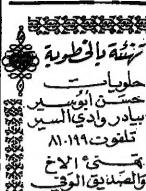 تهنئة بالخطوبة
حلويات
حسن أبو بسير
بيادر وادي السير
تلفون ٨١٠١٩٩
تهنئ الاخ
والصديق الوفي